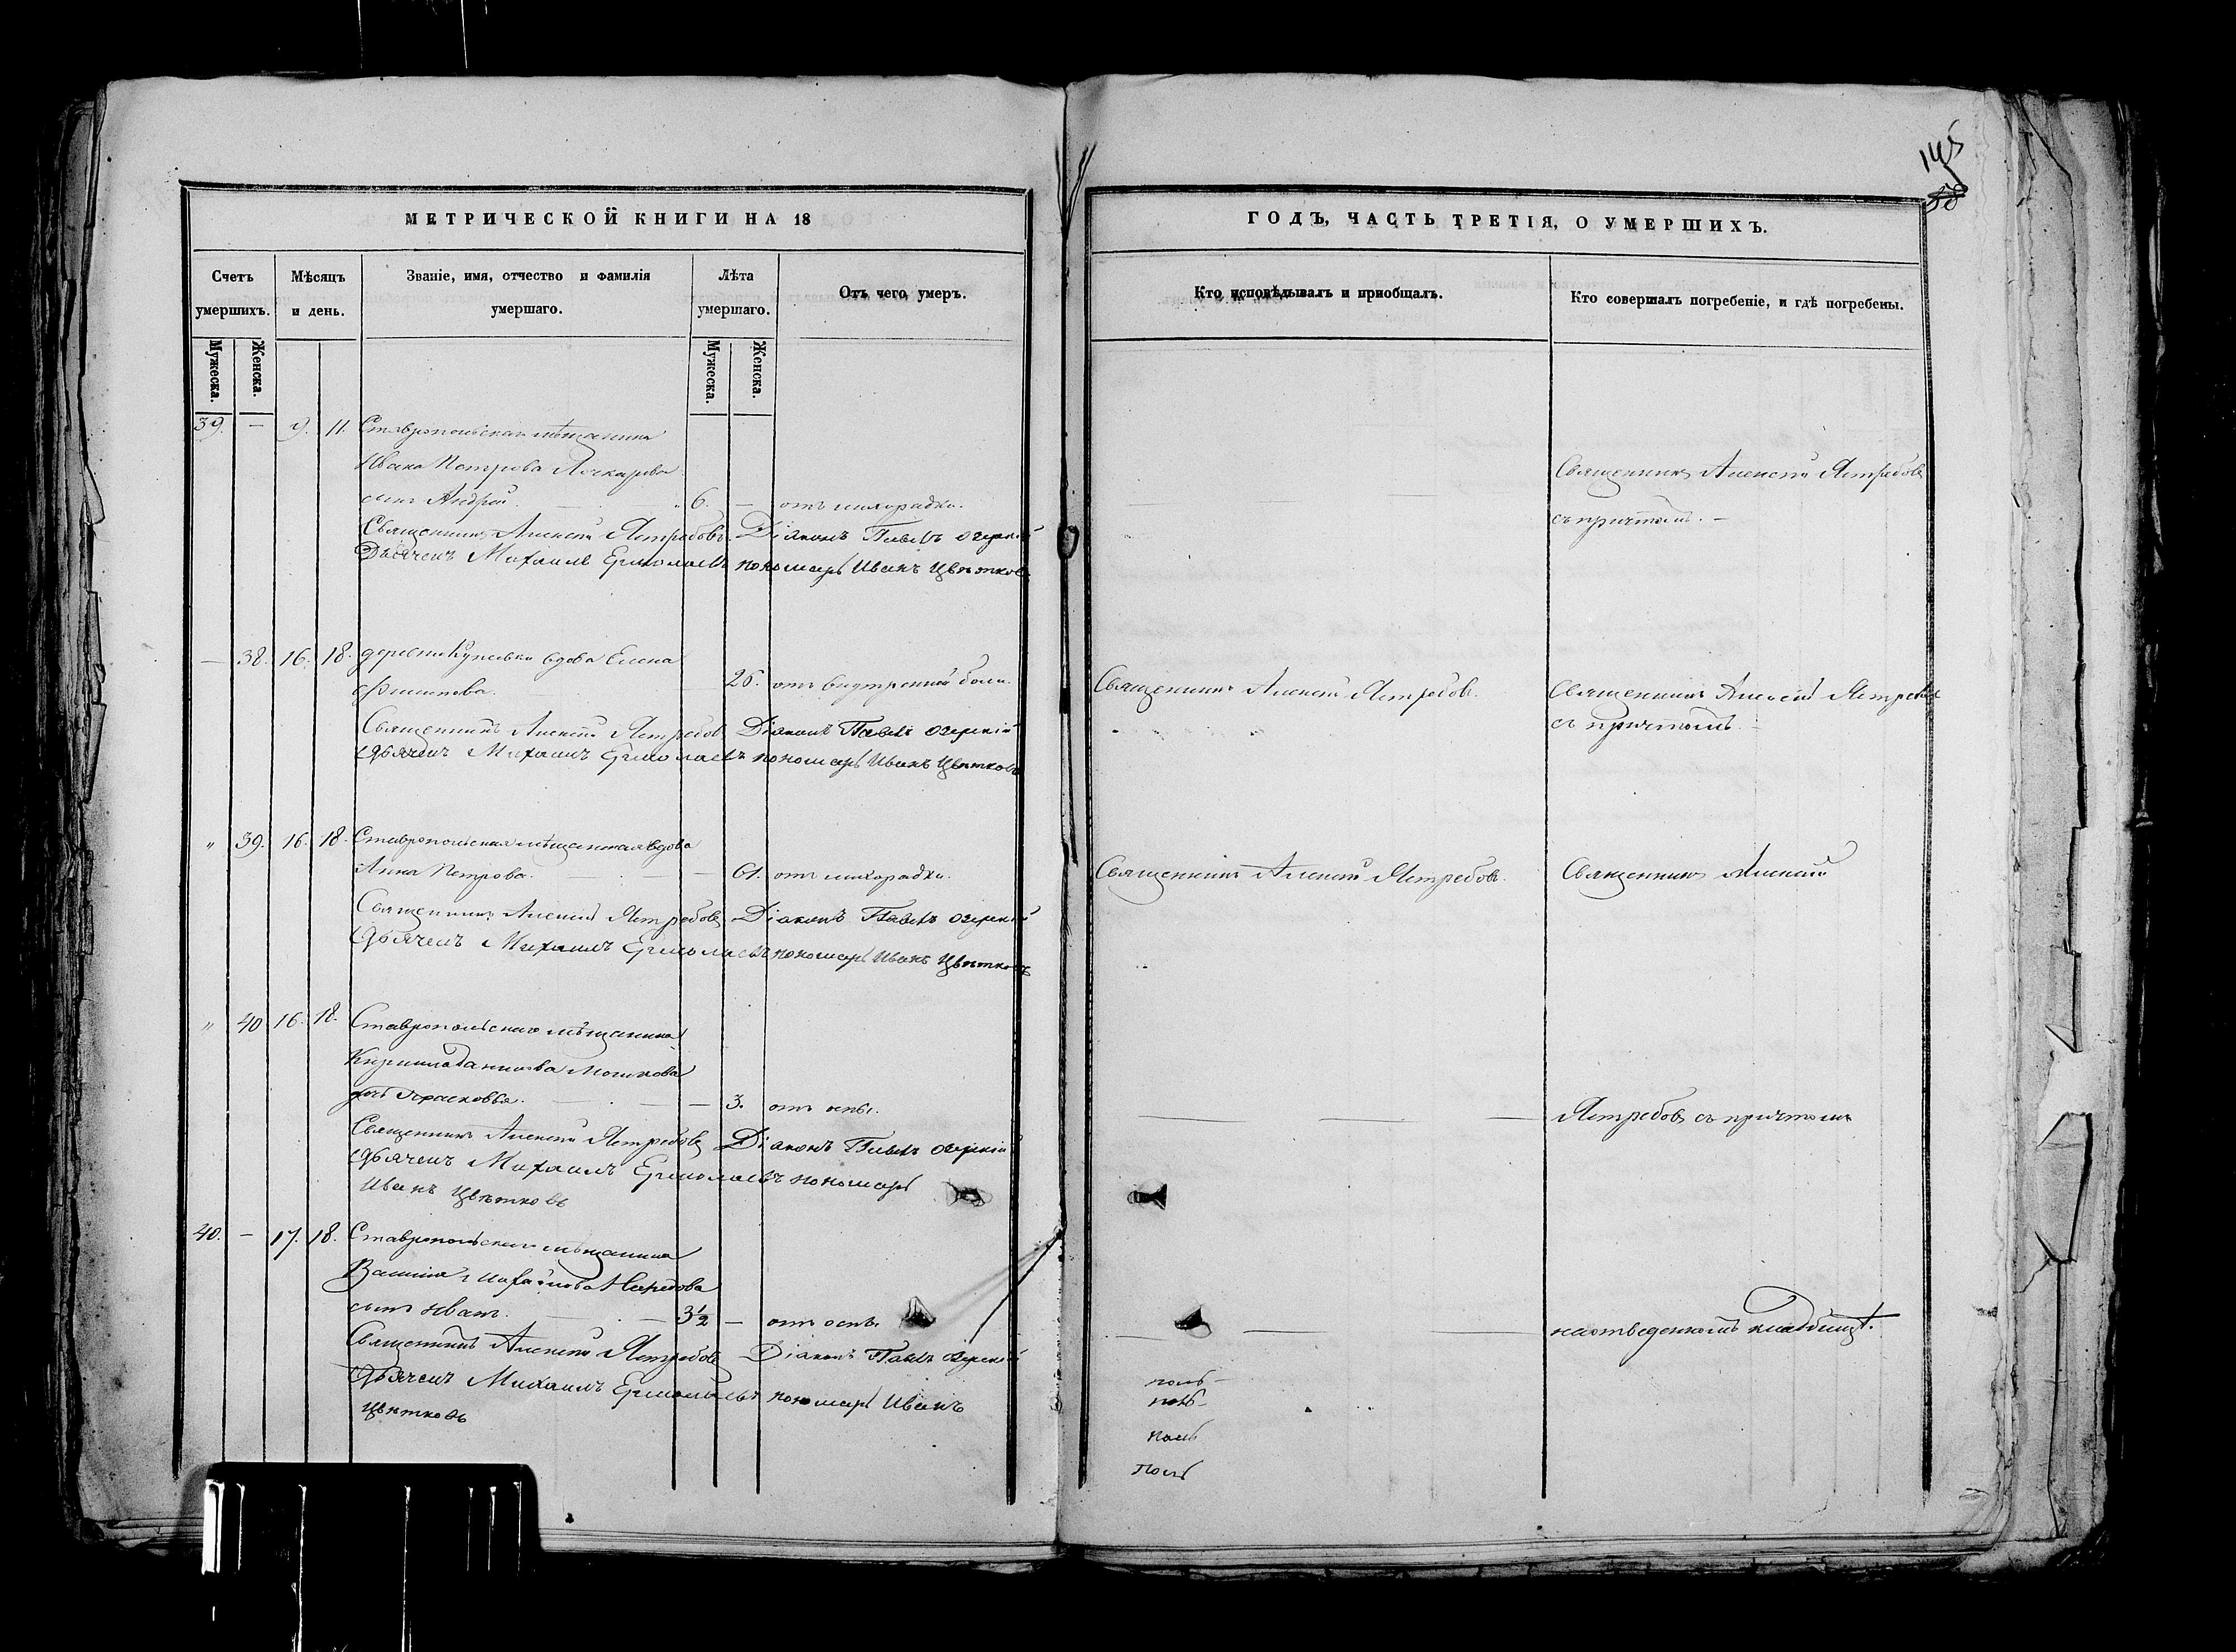 145
58
МЕТРИЧЕСКОЙ КНИГИ НА 18
Счетъ умершихъ.
Мѣсяцъ и день.
Званіе, имя, отчество и фамилія умершаго.
Лѣта умершаго.
Отъ чего умеръ.
Мужеска.
Женска.
Мужеска.
Женска.
39. — 9. 11. Ставропольскаго мѣщанина
Ивана Петрова
сынъ Андрей 6. — отъ лихорадки.
Священникъ Алексѣй Ястребовъ Діаконъ Павелъ Озерскій
Дьячекъ Михаилъ Ермолаевъ пономарь Иванъ Цвѣтковъ
— 38. 16. 18. деревни вдова Елена
Филипова. 26. отъ внутренней боли.
Священникъ Алексѣй Ястребовъ Діаконъ Павелъ Озерскій
Дьячекъ Михаилъ Ермолаевъ пономарь Иванъ Цвѣтковъ
" 39. 16. 18. Ставропольская мѣщанская вдова
Анна Петрова. — 61. отъ лихорадки.
Священникъ Алексѣй Ястребовъ Діаконъ Павелъ Озерскій
Дьячекъ Михаилъ Ермолаевъ пономарь Иванъ Цвѣтковъ
" 40 16. 18. Ставропольскаго мѣщанина
Кирилла
дочь Прасковья. — 3. отъ оспы.
Священникъ Алексѣй Ястребовъ Діаконъ Павелъ Озерскій
Дьячекъ Михаилъ Ермолаевъ пономарь
Иванъ Цвѣтковъ
40. — 17. 18. Ставропольскаго мѣщанина
Василія Михайлова
сынъ Иванъ. — 3½ — отъ оспы
Священникъ Алексѣй Ястребовъ Діаконъ Павелъ Озерскій
Дьячекъ Михаилъ Ермолаевъ пономарь Иванъ
Цвѣтковъ
ГОДЪ, ЧАСТЬ ТРЕТІЯ, О УМЕРШИХЪ.
Кто исповѣдывалъ и пріобщалъ.
Кто совершалъ погребеніе, и гдѣ погребены.
Священникъ Алексѣй Ястребовъ
съ причтомъ. —
Священникъ Алексѣй Ястребовъ. Священникъ Алексѣй Ястребовъ
съ причтомъ. —
Священникъ Алексѣй Ястребовъ. Священникъ Алексѣй
Ястребовъ съ причтомъ
на отведенномъ кладбищѣ.